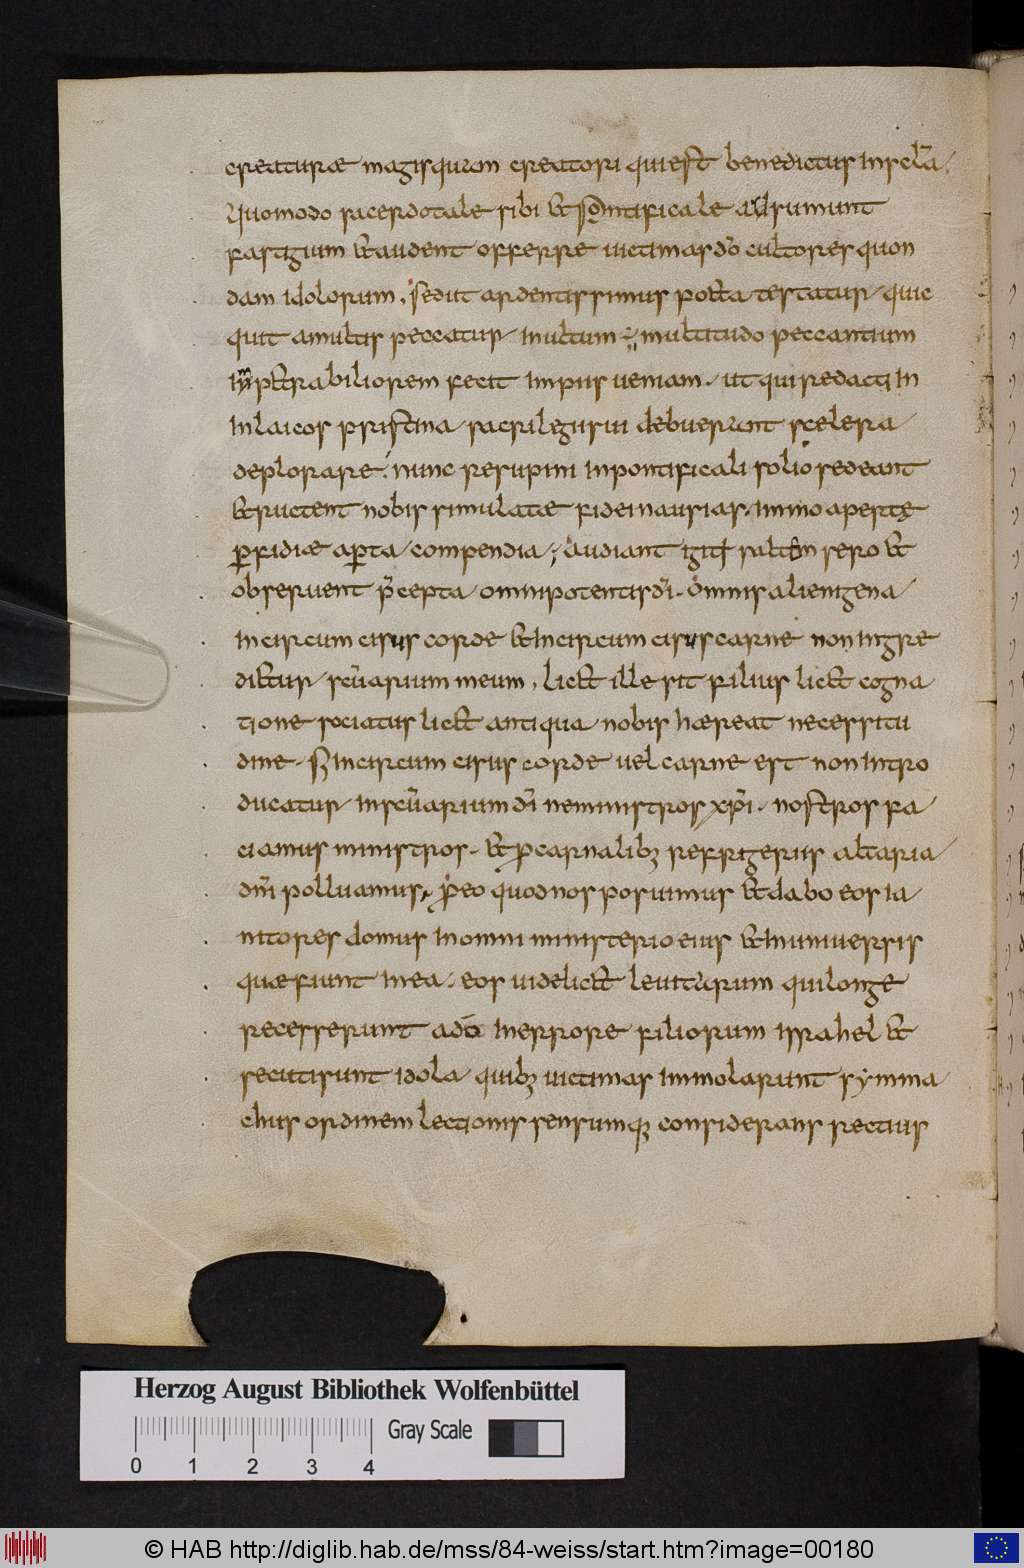 creaturae magisquam creatori quiest benedictus inscl̅a.
Quomodo sacerdotale sibi et pontificale adsumunt
fastigium etaudent offerre uictimasdo̅ cultoresquon
dam idolorum, seduit ardentissimus poeta testatur quic
quit amultis peccatur inultum ÷ multitudo peccantium
inpetrabiliorem fecit impiis ueniam. ut quiredacti in
inlaicos pristina sacrilegii sui debuerant scelera
deplorare. nunc resupini inpontificali soliosedeant
etructent nobis simulatae fideinausias. immo aperte
ꝑfidiae aꝑta compendia; audiant igit̅ saltem sero et
obseruent p̅cepta omnipotentisdi̅. omnis alienigena
incircumcisus corde etincircumcisus carne non ingre
dietur sc̅uarium meum, licet ille sit filius licet cogna
tione sociatus licet antiqua nobis haereat necessitu
dine. Siincircumcisus corde uel carne est non intro
ducatur insc̅uarium di̅ neministros xp̅i. nostros fa
ciamus ministros. et ꝓcarnalibꝫ refrigeriis altaria
dn̅i polluamus, ꝓeo quodnos posuimus etdabo eos ia
nitores domus inomni ministerioeius etinuniuersis
quaefiunt inea. eos uidelicet leuitarum quilonge
recesserunt ado̅ inerrore filiorum israhel et
secutisunt idola quibꝫ uictimas immolarunt symma
chus ordinem lectionis sensumqꝫ considerans rectius
Herzog August Bibliothek Wolfenbüttel
Gray Scale
0 1 2 3 4
© HAB http://diglib.hab.de/mss/84-weiss/start.htm?image=00180